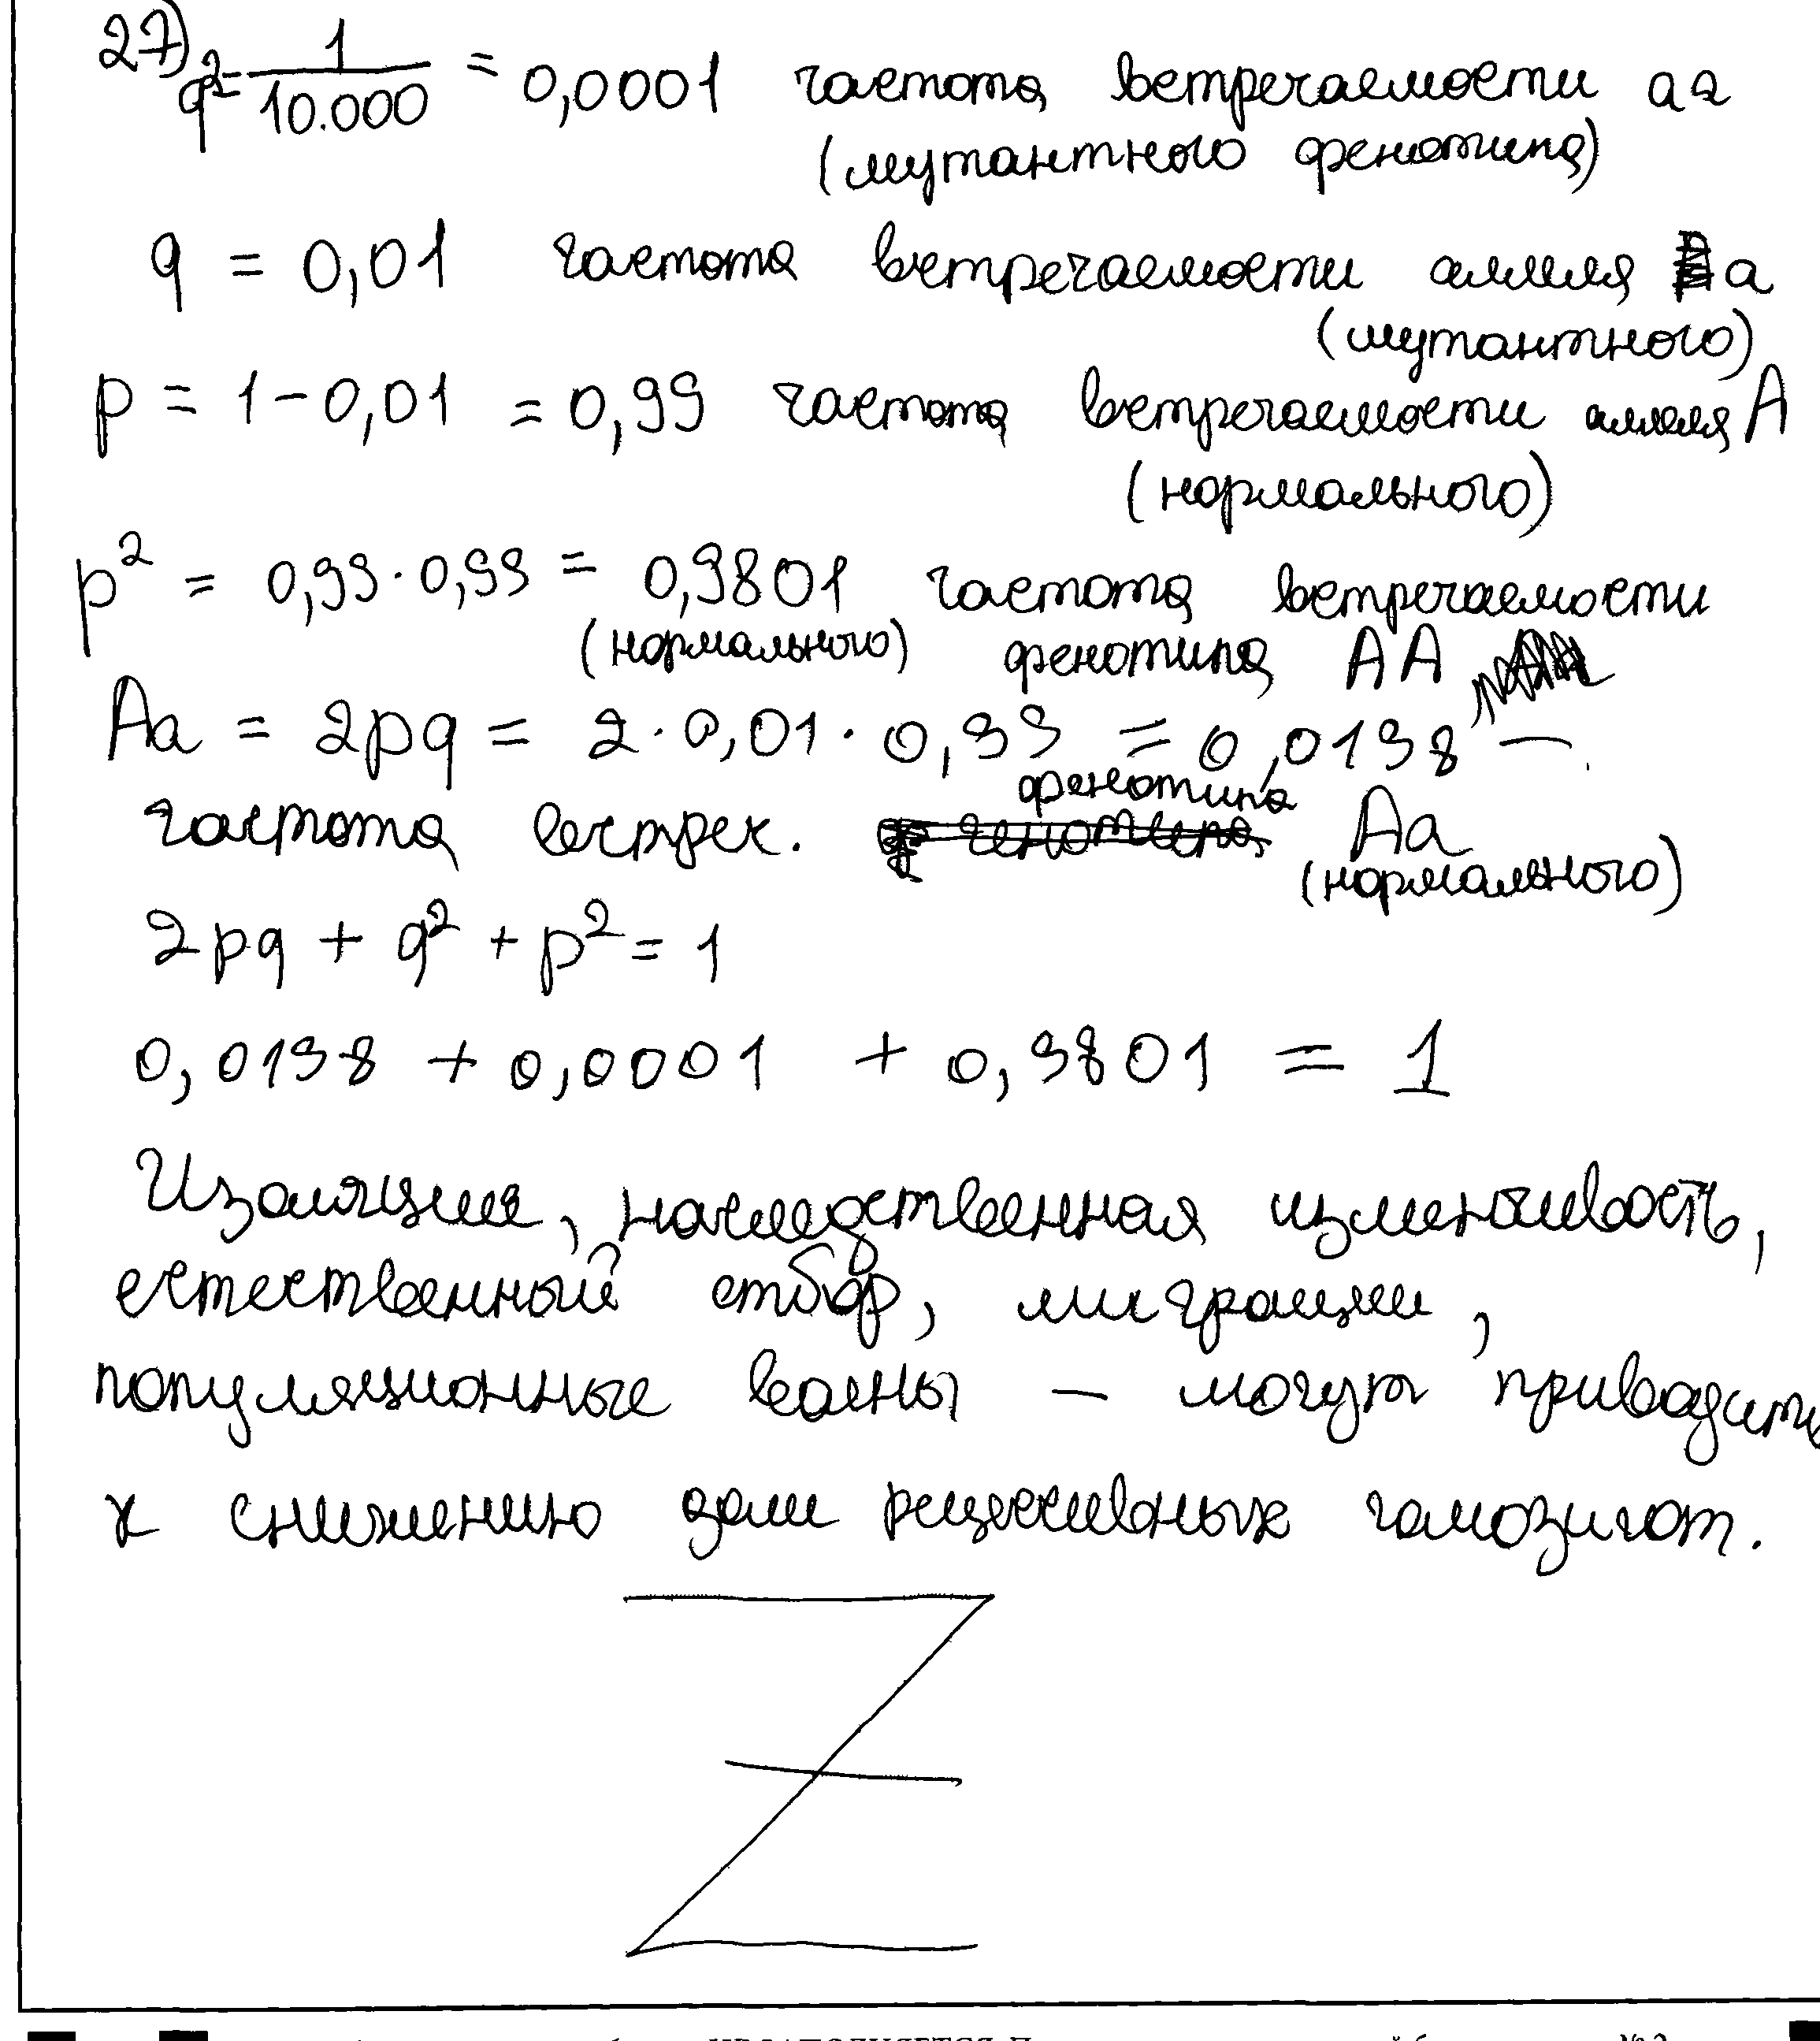 27)
q² = 1/10.000 = 0,0001 частота встречаемости аа
(мутантного фенотипа)
q = 0,01 частота встречаемости аллеля а
(мутантного)
p = 1 – 0,01 = 0,99 частота встречаемости аллеля А
(нормального)
p² = 0,99 · 0,99 = 0,9801 частота встречаемости
(нормального) фенотипа АА
Аа = 2pq = 2 · 0,01 · 0,99 = 0,0198 –
фенотипа
частота встреч. Аа
(нормального)
2pq + q² + p² = 1
0,0198 + 0,0001 + 0,9801 = 1
Изоляция, наследственная изменчивость,
естественный отбор, миграции,
популяционные волны – могут приводить
к снижению доли рецессивных гомозигот.
Z